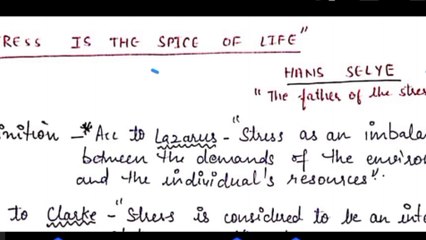 TRESS IS THE SPICE OF LIFE"
HANS SELYE
"The father of the stres
inition - *Acc to Lazarus - "Stress as an imbala
between the demands of the enviro
and the individual's resources".
to Clarke - "Stress is considered to be an inte